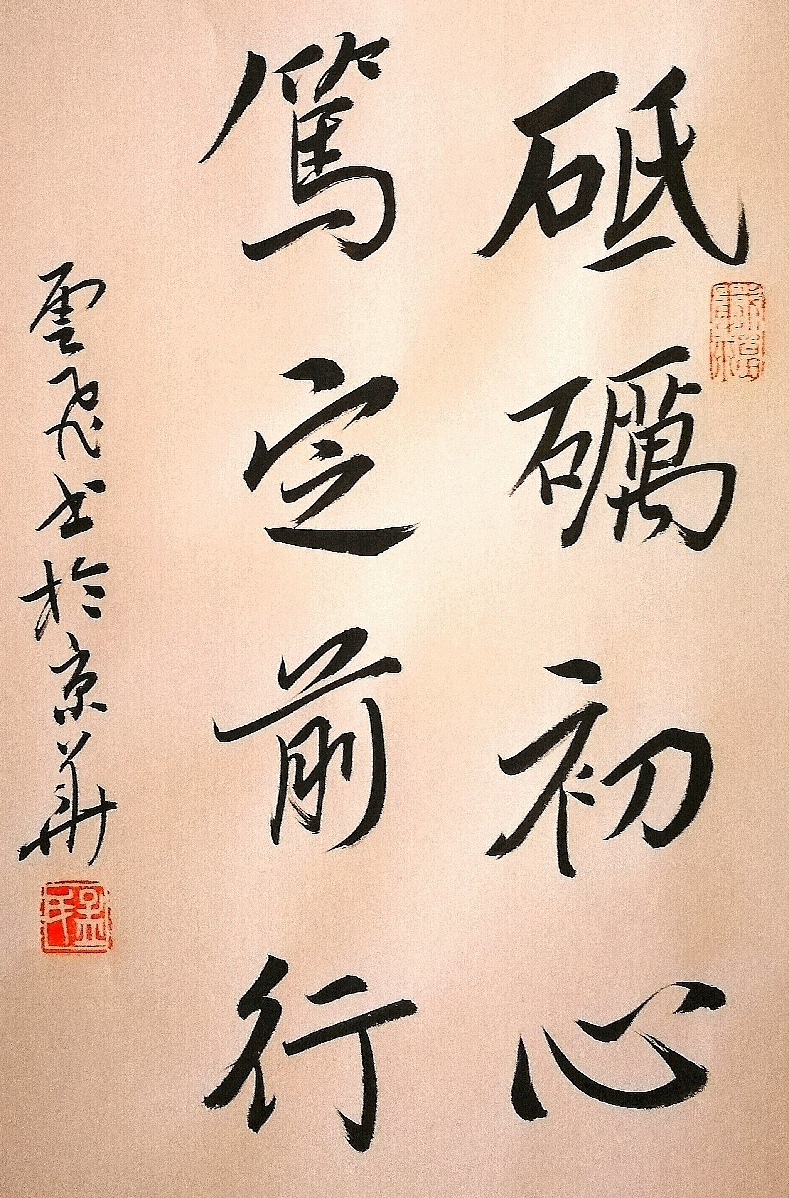 砥礪初心
篤定前行
雲飛书於京華